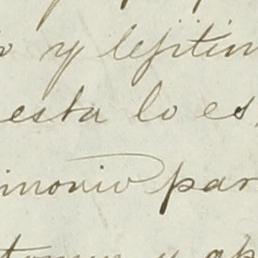 y lejitim
esta lo es
imonio par
y